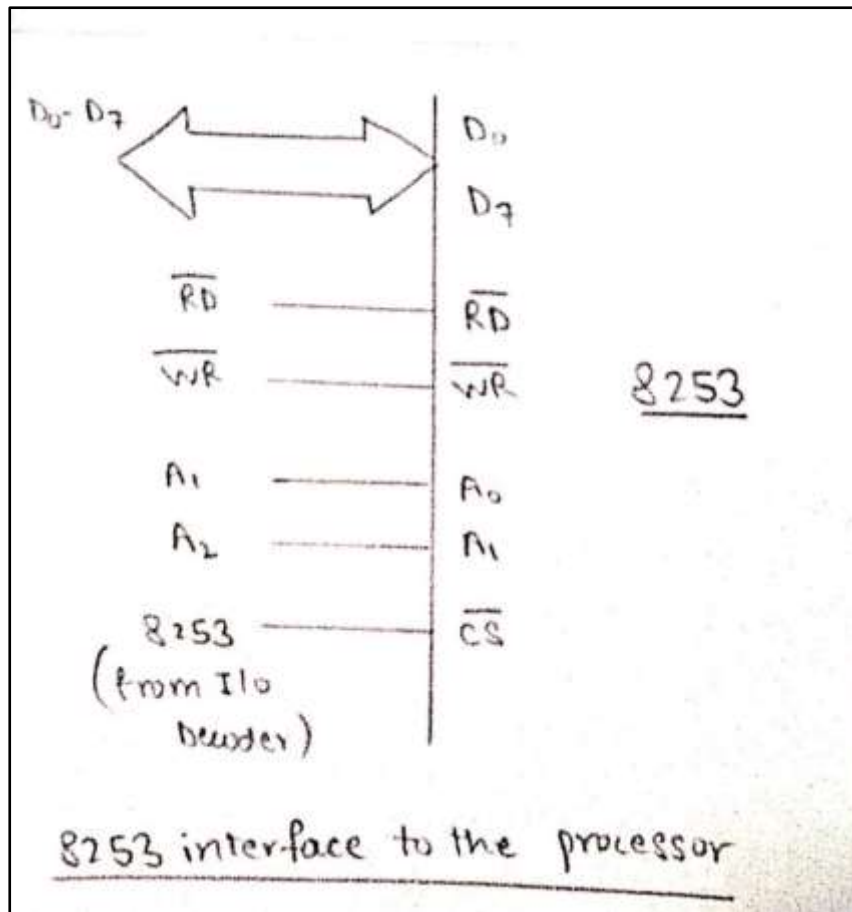 D₀-D₇ D₀
D₇
R̅D̅ R̅D̅
W̅R̅ W̅R̅ 8253
A₁ A₀
A₂ A₁
8253 C̅S̅
(from I/o
Decoder)
8253 interface to the processor